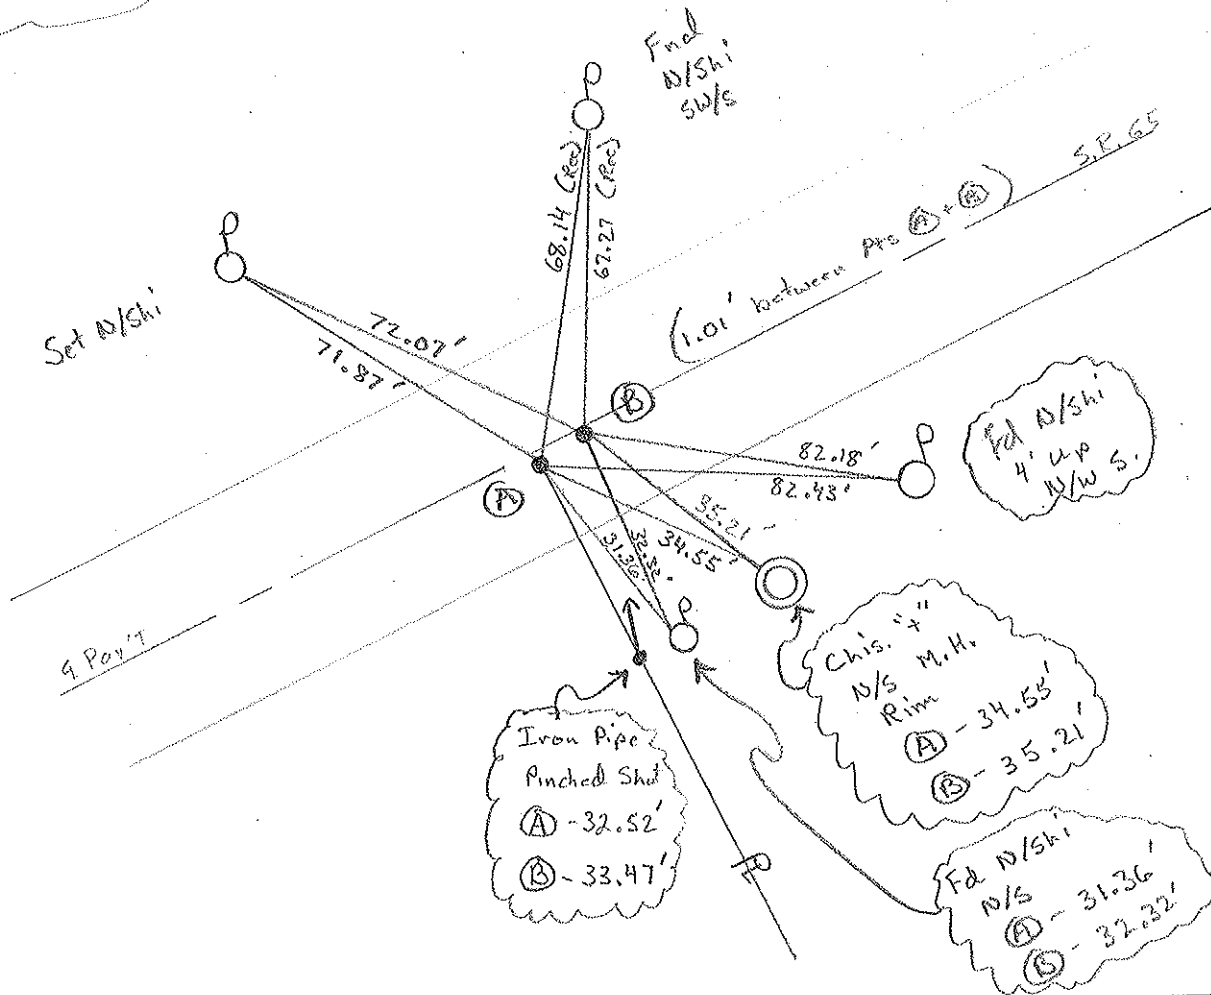 Fnd
N/Shi
SW/S
S.R. 65
68.14 (Rec)
67.27 (Rec)
(1.01' between Pts Ⓐ + Ⓐ)
Set N/Shi
72.07'
71.87'
Ⓑ
Ⓐ
82.18'
82.43'
Fd N/Shi
4' up
N/W S.
35.21'
34.55'
31.36'
32.32'
℄ Pav'T
Chis. "+"
N/S M.H.
Rim
Ⓐ - 34.55'
Ⓑ - 35.21'
Iron Pipe
Pinched Shut
Ⓐ - 32.52'
Ⓑ - 33.47'
Fd N/Shi
N/S
Ⓐ - 31.36'
Ⓑ - 32.32'